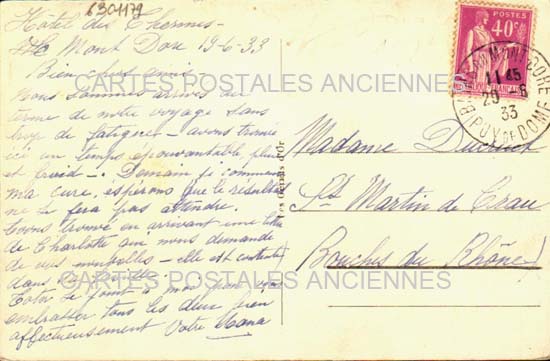 6301179
Hôtel des Thermes -
Le Mont Dore 19-6-33
Bien chers amis
Nous sommes arrivés au
terme de notre voyage sans
trop de fatigue - avons trouvé
ici un temps épouvantable pluie
et froid -. Demain je commence
ma cure, espérons que le résultat
ne se fera pas attendre.
Avons trouvé en arrivant une lettre
de Charlotte qui nous demande
de vos nouvelles - elle est contente
dans
se joint à moi pour vous
embrasser tous les deux bien
affectueusement Votre Nana
POSTES
40c
LE MONT-DORE
11 45
20 - 6
33
PUY DE DOME
Madame
St Martin de Crau
Bouches du Rhône
CARTES POSTALES ANCIENNES
CARTES POSTALES ANCIENNES